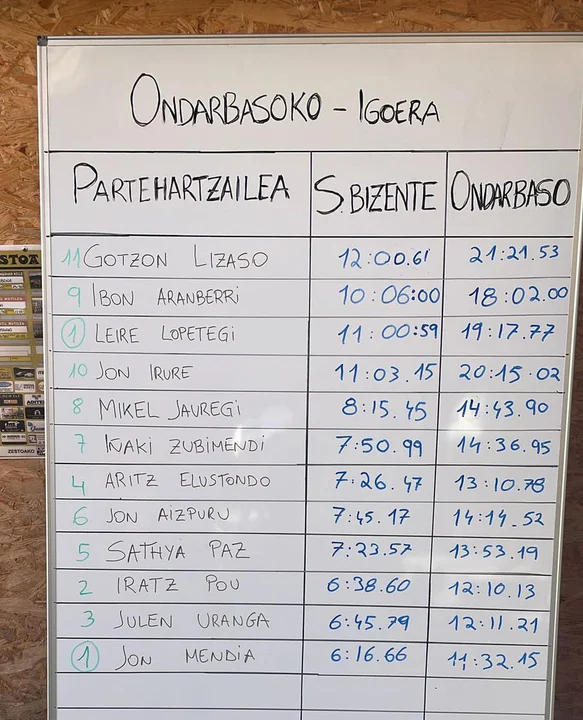 ONDARBASOKO - IGOERA
PARTEHARTZAILEA S.BIZENTE ONDARBASO
11 GOTZON LIZASO 12:00.61 21:21.53
9 IBON ARANBERRI 10:06:00 18:02.00
1 LEIRE LOPETEGI 11:00:59 19:17.77
10 JON IRURE 11:03.15 20:15.02
8 MIKEL JAUREGI 8:15.45 14:43.90
7 IÑAKI ZUBIMENDI 7:50.99 14:36.95
4 ARITZ ELUSTONDO 7:26.47 13:10.78
6 JON AIZPURU 7:45.17 14:14.52
5 SATHYA PAZ 7:23.57 13:53.19
2 IRATZ POU 6:38.60 12:10.13
3 JULEN URANGA 6:45.79 12:11.21
1 JON MENDIA 6:16.66 11:32.15
STOA
ZESTOAKO